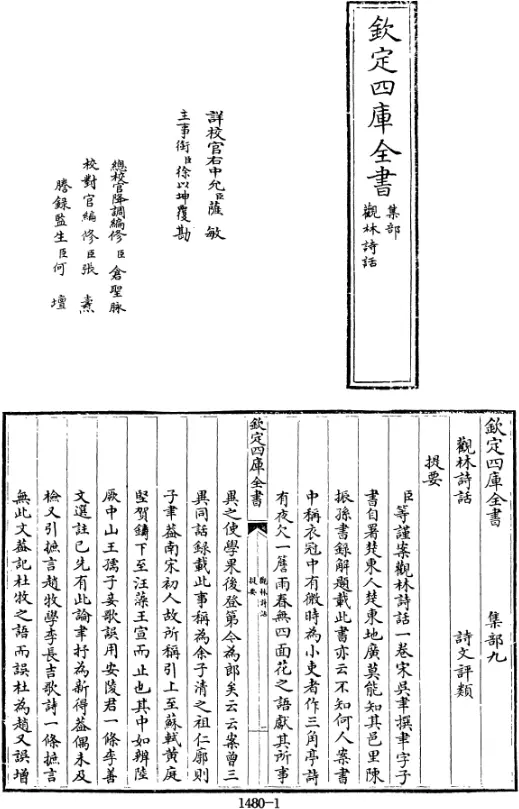 欽定四庫全書
集部
觀林詩話
詳校官右中允臣薩敏
主事銜臣徐以坤覆勘
總校官降調編修臣倉聖脉
校對官編修臣張燾
謄錄監生臣何壇
欽定四庫全書　集部九
觀林詩話　詩文評類
提要
臣等謹案觀林詩話一卷宋吳聿撰聿字子
書自署楚東人楚東地廣莫能知其邑里陳
振孫書錄解題載此書亦云不知何人案書
中稱衣冠中有微時為小吏者作三角亭詩
有夜欠一簷雨春無四面花之語獻其所事
欽定四庫全書
觀林詩話
提要
一
異之使學果後登第今為郎矣云云案曾三
異同話録載此事稱為余子清之祖仁廓則
子聿葢南宋初人故所稱引上至蘇軾黄庭
堅賀鑄下至汪藻王宣而止也其中如辨陸
厥中山王孺子妾歌誤用安陵君一條李善
文選註已先有此論聿抒為新得葢偶未及
檢又引摭言趙牧學李長吉歌詩一條摭言
無此文葢記杜牧之語而誤杜為趙又誤增
1480-1